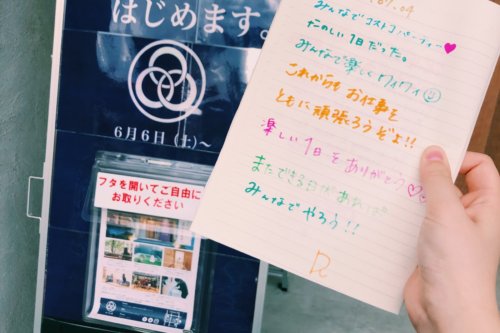 はじめます。
6月6日(土)~
フタを開いてご自由に
お取りください
.04
みんなでコストコパーティー♥
たのしい1日だった。
みんなで楽しくワイワイ☺
これからも お仕事を
ともに頑張ろうぞよ!!
楽しい1日をありがとう♡♡
またできる日があれば
みんなでやろう!!